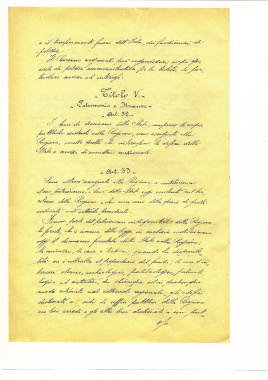 e il trasferimento fuori dell'Isola, dei funzionari di
polizia.
Il Governo regionale può organizzare corpi spe-
ciali di polizia amministrativa per la tutela di par-
ticolari servizi ed interessi.
Titolo V.
Patrimonio e Finanze
Art. 32.
I beni di demanio dello Stato, comprese le acque
pubbliche esistenti nella Regione, sono assegnati alla
Regione, eccetto quelli che interessano la difesa dello
Stato o servizi di carattere nazionale.
Art. 33.
Sono altresì assegnati alla Regione e costituiscono
il suo patrimonio, i beni dello Stato oggi esistenti nel ter-
ritorio della Regione e che non sono della specie di quelli
indicati nell'articolo precedente.
Fanno parte del patrimonio indisponibile della Regione:
le foreste, che a norma delle leggi in materia costituiscono
oggi il demanio forestale dello Stato nella Regione;
le miniere, le cave e torbiere, quando la disponibi-
lità ne è sottratta al proprietario del fondo; le cose d'in-
teresse storico, archeologico, paletnologico, paleonto-
logico ed artistico, da chiunque ed in qualunque
modo ritrovate nel sottosuolo regionale; gli edifici
destinati a sede di uffici pubblici della Regione
coi loro arredi e gli altri beni destinati a un pub-